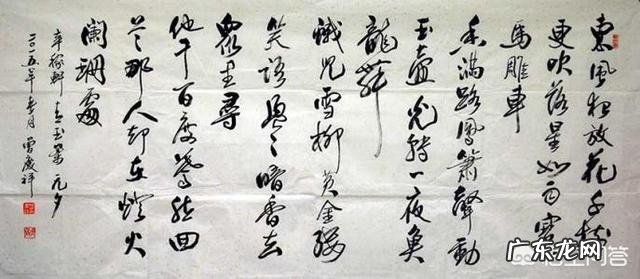 東風夜放花千樹
更吹落星如雨寶
馬雕車
香滿路鳳簫聲動
玉壺光轉一夜魚
龍舞
蛾兒雪柳黃金縷
笑語盈々暗香去
眾里尋
他千百度驀然回
首那人却在燈火
闌珊處
辛稼軒 青玉案 元夕
二〇一五年 月 曾慶祥
广东龙网
问答